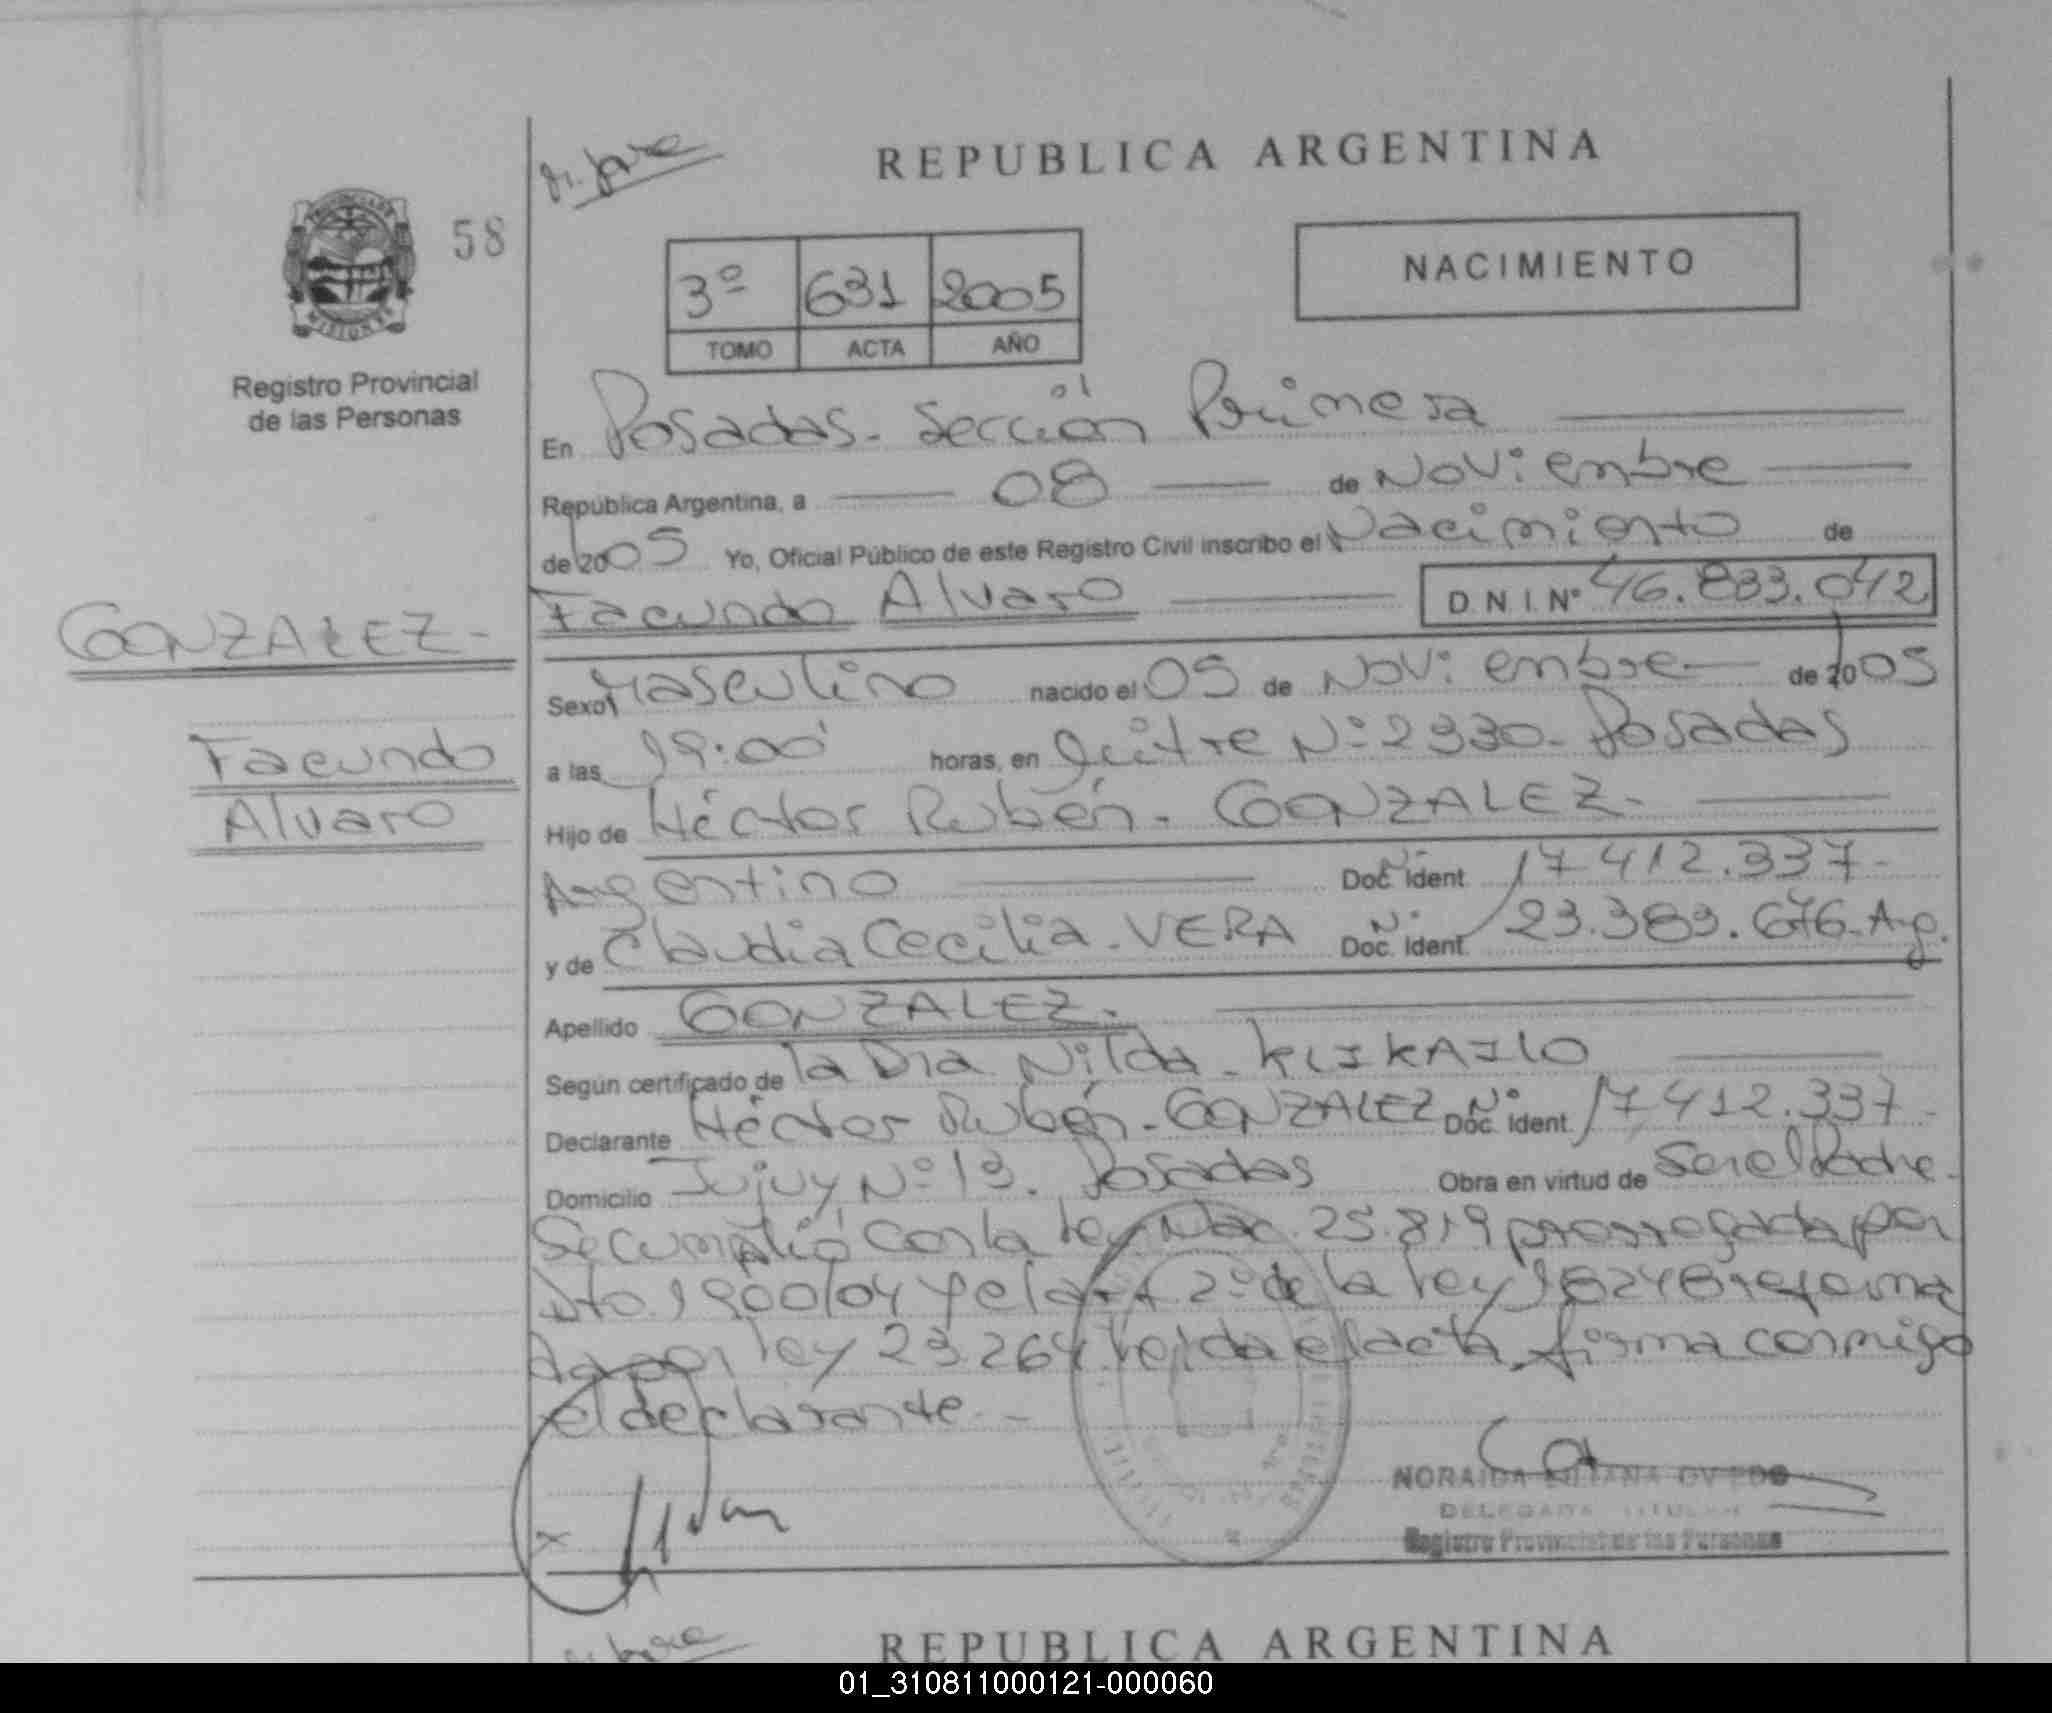 REPUBLICA ARGENTINA
PROVINCIA DE
MISIONES
58
Registro Provincial
de las Personas
3º 631 2005
TOMO ACTA AÑO
NACIMIENTO
En Posadas - Sección Primera
República Argentina, a 08 de Noviembre
de 2005 Yo, Oficial Público de este Registro Civil inscribo el Nacimiento de
Facundo Alvaro D.N.I. Nº 46.883.042
GONZALEZ -
Facundo
Alvaro
Sexo Masculino nacido el 05 de Noviembre de 2005
a las 19:00 horas, en Nº 2330 - Posadas
Hijo de Héctor Rubén - GONZALEZ -
Argentino Nº Doc. Ident. 17.412.337 -
y de Claudia Cecilia - VERA Nº Doc. Ident. 23.383.676 - Arg.
Apellido GONZALEZ -
Según certificado de la Dra Nilda - KLIKAILO
Declarante Héctor Rubén - GONZALEZ Nº Doc. Ident. 17.412.337 -
Domicilio Jujuy Nº 13. Posadas Obra en virtud de Ser el Padre -
Se cumplió con la ley Nac. 25.819 prorrogada por
Dto. 1900/04 y el art 2º de la ley 18248 reforma
da por ley 23.264 leída el acta, firma conmigo
el declarante. -
NORAIDA LILIANA OVIEDO
DELEGADA TITULAR
Registro Provincial de las Personas
REPUBLICA ARGENTINA
01_310811000121-000060